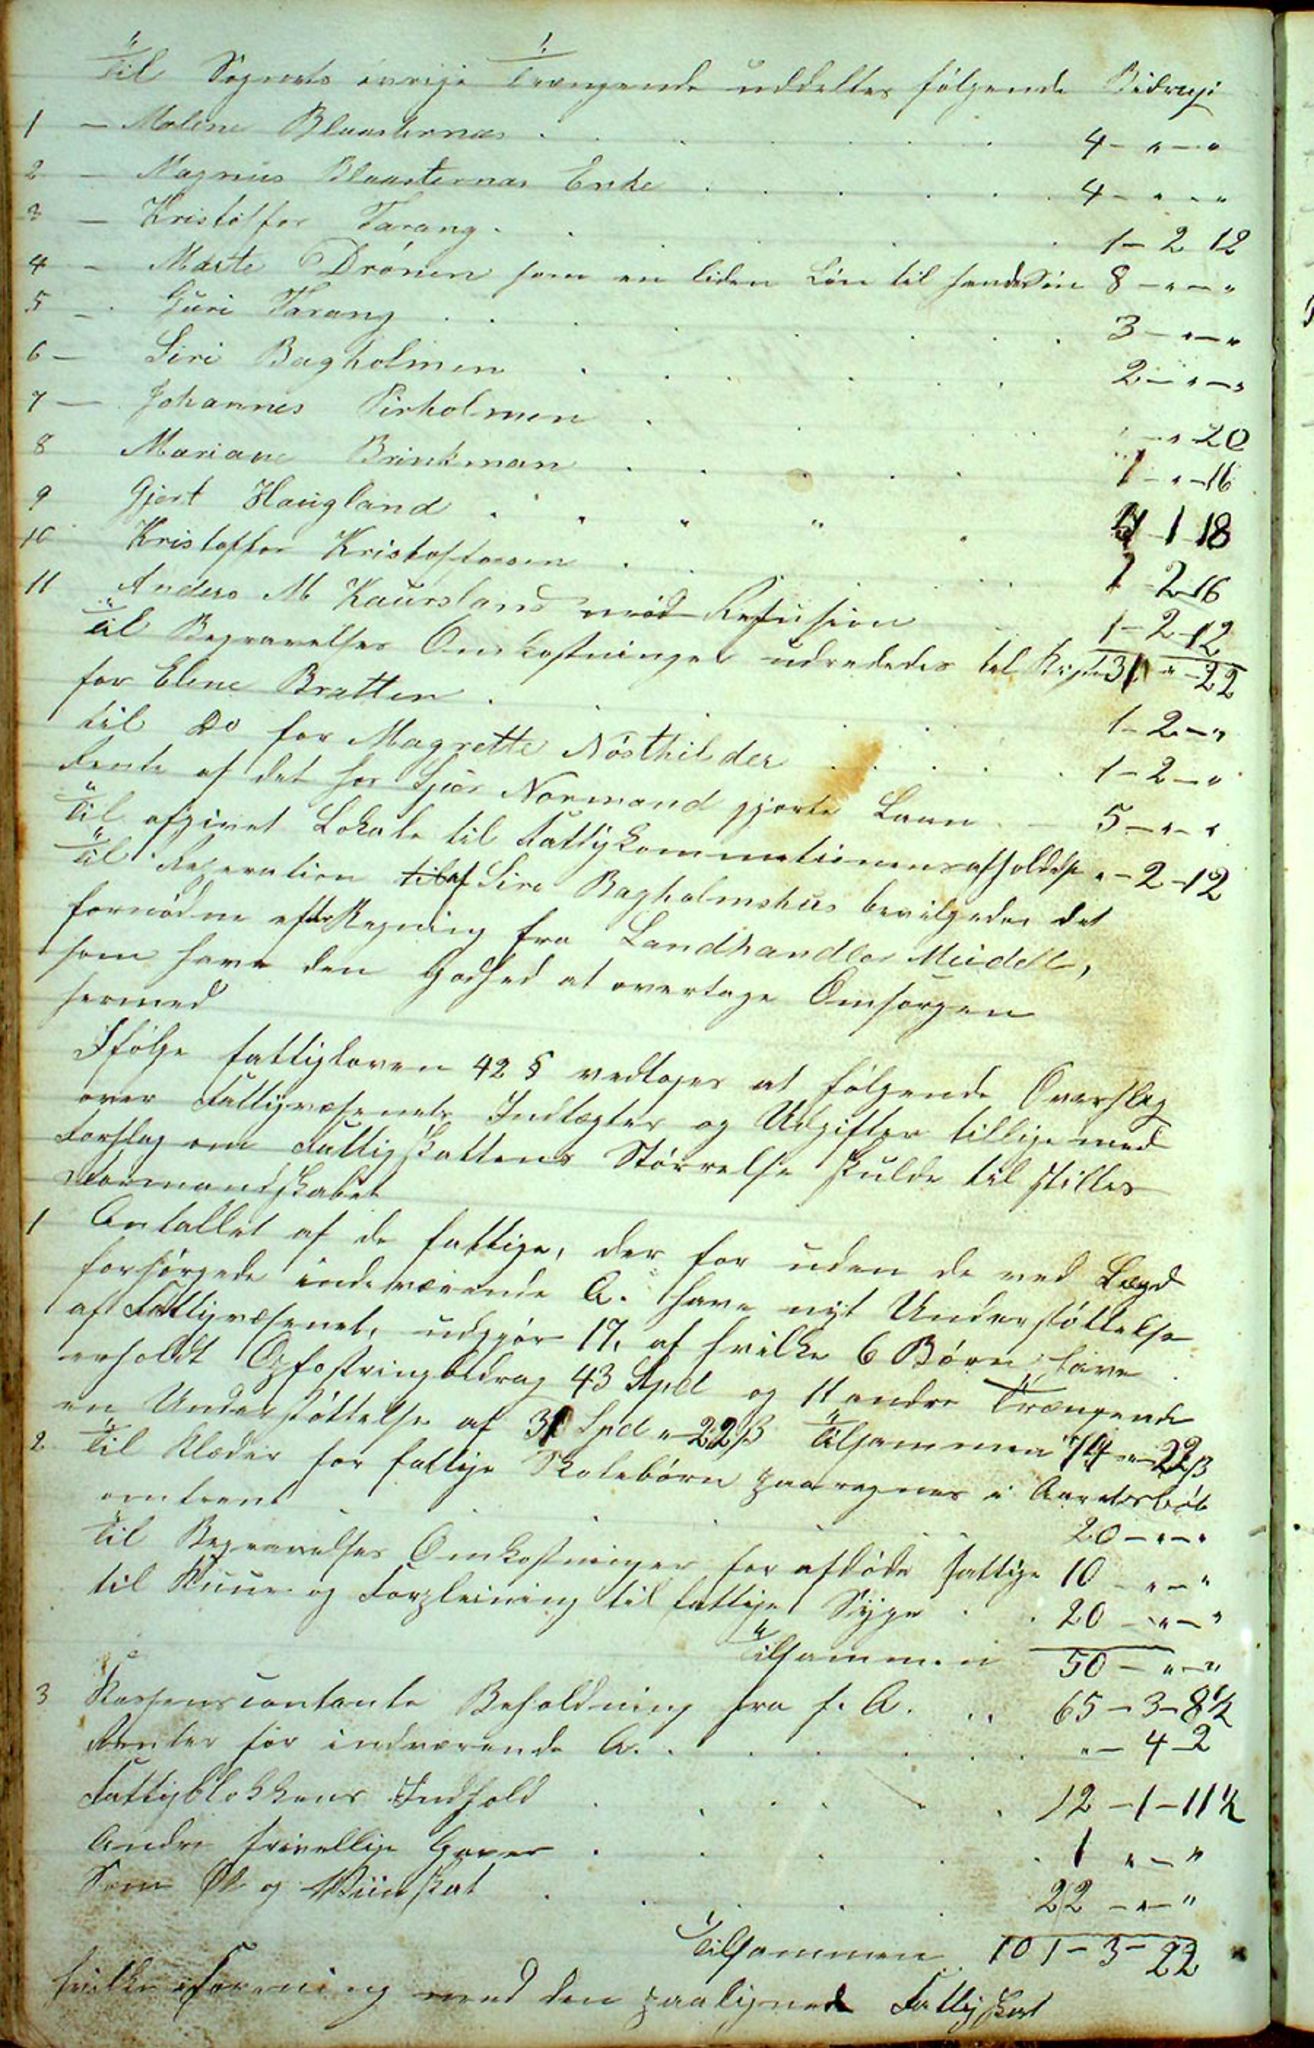 Til Sognets øvrige Trængende uddeltes følgende Bidrag:
1 - Malene Blaasternæs . . . . 4 - " - "
2 - Magnus Blaasternæs Enke . . . . 4 - " - "
3 - Kristoffer Tarang . . . . 1 - 2 12
4 - Marte Drønen som en liden Løn til hendes Søn 8 - " - "
5 - Guri Tarang . . . . 3 - " - "
6 - Siri Bagholmen . . . . 2 - " - "
7 - Johannes Pirholmen . . . . " - " 20
8 Mariane Brinkman . . . . 1 - " - 16
9 Gjert Haugland . . . . 4 - 1 18
10 Kristoffer Kristoffersen . . . . 1 - 2 - 16
11 Anders M Kaursland mod Refusion . . 1 - 2 - 12
31 - " - 22
Til Begravelses Omkostninger udrededes til Kiste
for Elene Bratten . . . . 1 - 2 - "
til Do for Magrette Nøsthilder . . . . 1 - 2 - "
Rente af det hos Sjur Normand gjorte Laan - 5 - " - "
Til afgivet Lokale til Fattigkommisionens afholdelse " - 2 - 12
Til Reperation af Siri Bagholms hus bevilgedes det
fornødne efter Regning fra Landhandler Meidell,
som have den Godhed at overtage Omsorgen
hermed
Ifølge fattigloven 42 § vedtoges at følgende Overslag
over Fattigvæsenets Indtægter og Udgifter tillige med
Forslag om Fattigskattens Størrelse skulde tilstilles
Formandskabet
1 Antallet af de fattige, der for uden de ved Lægd
forsørgede indeværende A. have nyt Understøttelse
af Fattigvæsenet, udgjør 17, af hvilke 6 Børn have
erholdt Opfostringbidrag 43 Spd og 11 andre Trængende
en Understøttelse af 31 Spd " - 22 ß Tilsammen 74 - " - 22 ß
2 Til Klæder for fattige Skolebørn paaregnes i Aarets løb
omtrent . . . . 20 - " - "
Til Begravelses Omkostninger for afdøde fattige 10 - " - "
til Kuur og Forpleining til fattige Syge . . 20 - " - "
Tilsammen 50 - " - "
3 Kassens contante Beholdning fra f. A. . . 65 - 3 - 8 ½
Renter for indværende A. . . . . " - 4 - 2
Fattigblokkens Indhold . . . . 12 - 1 - 11 ½
Andre frivellige Gaver . . . . 1 " - "
Som Øl og Viinskat . . . . 22 - " - "
Tilsammen 101 - 3 - 22
hvilke i Forening med den paalignede Fattigskat